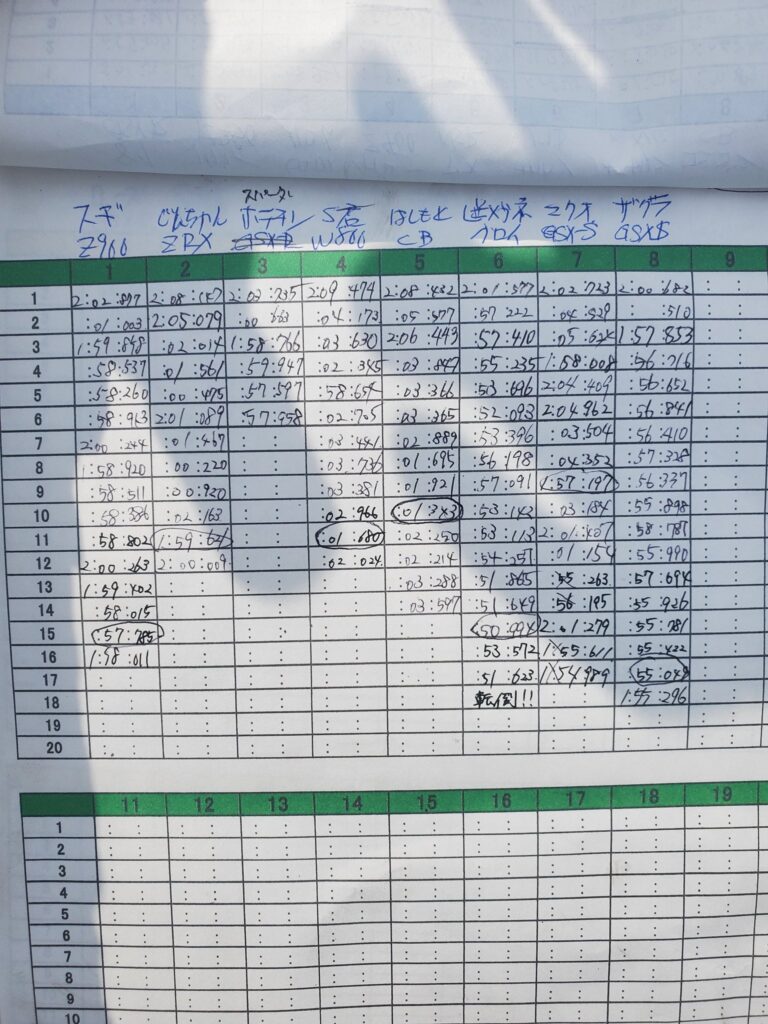 スパーダ
スギ じんちゃん S君 はしもと ミクオ
Z900 ZRX W800 CB GSX-S
1 2 3 4 5 6 7 8 9
1 2:02:897 2:08:147 2:02:735 2:09:474 2:08:432 2:01:577 2:02:723 2:00:682 : :
2 :01:003 2:05:079 :04:173 :05:577 :57:222 :04:529 :510 : :
3 1:59:848 :02:014 1:58:766 :03:630 2:06:443 :57:410 :05:624 1:57:853 : :
4 :58:537 :01:561 :59:947 :02:345 :03:847 :55:235 1:58:008 :56:716 : :
5 :58:260 :00:475 :57:597 :58:654 :03:366 :53:696 2:04:409 :56:652 : :
6 :58:913 2:01:089 :57:958 :02:705 :03:365 :52:093 2:04:962 :56:841 : :
7 2:00:244 :01:467 : : :03:441 :02:889 :53:396 :03:504 :56:410 : :
8 1:58:920 :00:220 : : :03:736 :01:695 :56:198 :04:352 :57:328 : :
9 :58:511 :00:920 : : :03:381 :01:921 :57:091 :57:197 :56:337 : :
10 :58:386 :02:163 : : :02:966 :01:343 :53:142 :03:184 :55:898 : :
11 :58:802 1:59:621 : : :01:680 :02:250 :53:113 2:01:407 :58:787 : :
12 2:00:263 2:00:009 : : :02:024 :02:214 :54:257 :01:154 :55:990 : :
13 1:59:402 : : : : : : :03:288 :51:865 :55:263 :57:694 : :
14 :58:015 : : : : : : :03:597 :51:649 :56:195 :55:926 : :
15 :57:785 : : : : : : : : :50:994 2:01:279 :55:781 : :
16 1:58:011 : : : : : : : : :53:572 1:55:611 :55:422 : :
17 : : : : : : : : : : :51:623 1:54:989 :55:048 : :
18 : : : : : : : : : : 転倒!! : : 1:55:296 : :
19 : : : : : : : : : : : : : : : : : :
20 : : : : : : : : : : : : : : : : : :
11 12 13 14 15 16 17 18 19
1 : : : : : : : : : : : : : : : : : :
2 : : : : : : : : : : : : : : : : : :
3 : : : : : : : : : : : : : : : : : :
4 : : : : : : : : : : : : : : : : : :
5 : : : : : : : : : : : : : : : : : :
6 : : : : : : : : : : : : : : : : : :
7 : : : : : : : : : : : : : : : : : :
8 : : : : : : : : : : : : : : : : : :
9 : : : : : : : : : : : : : : : : : :
10 : : : : : : : : : : : : : : : : : :